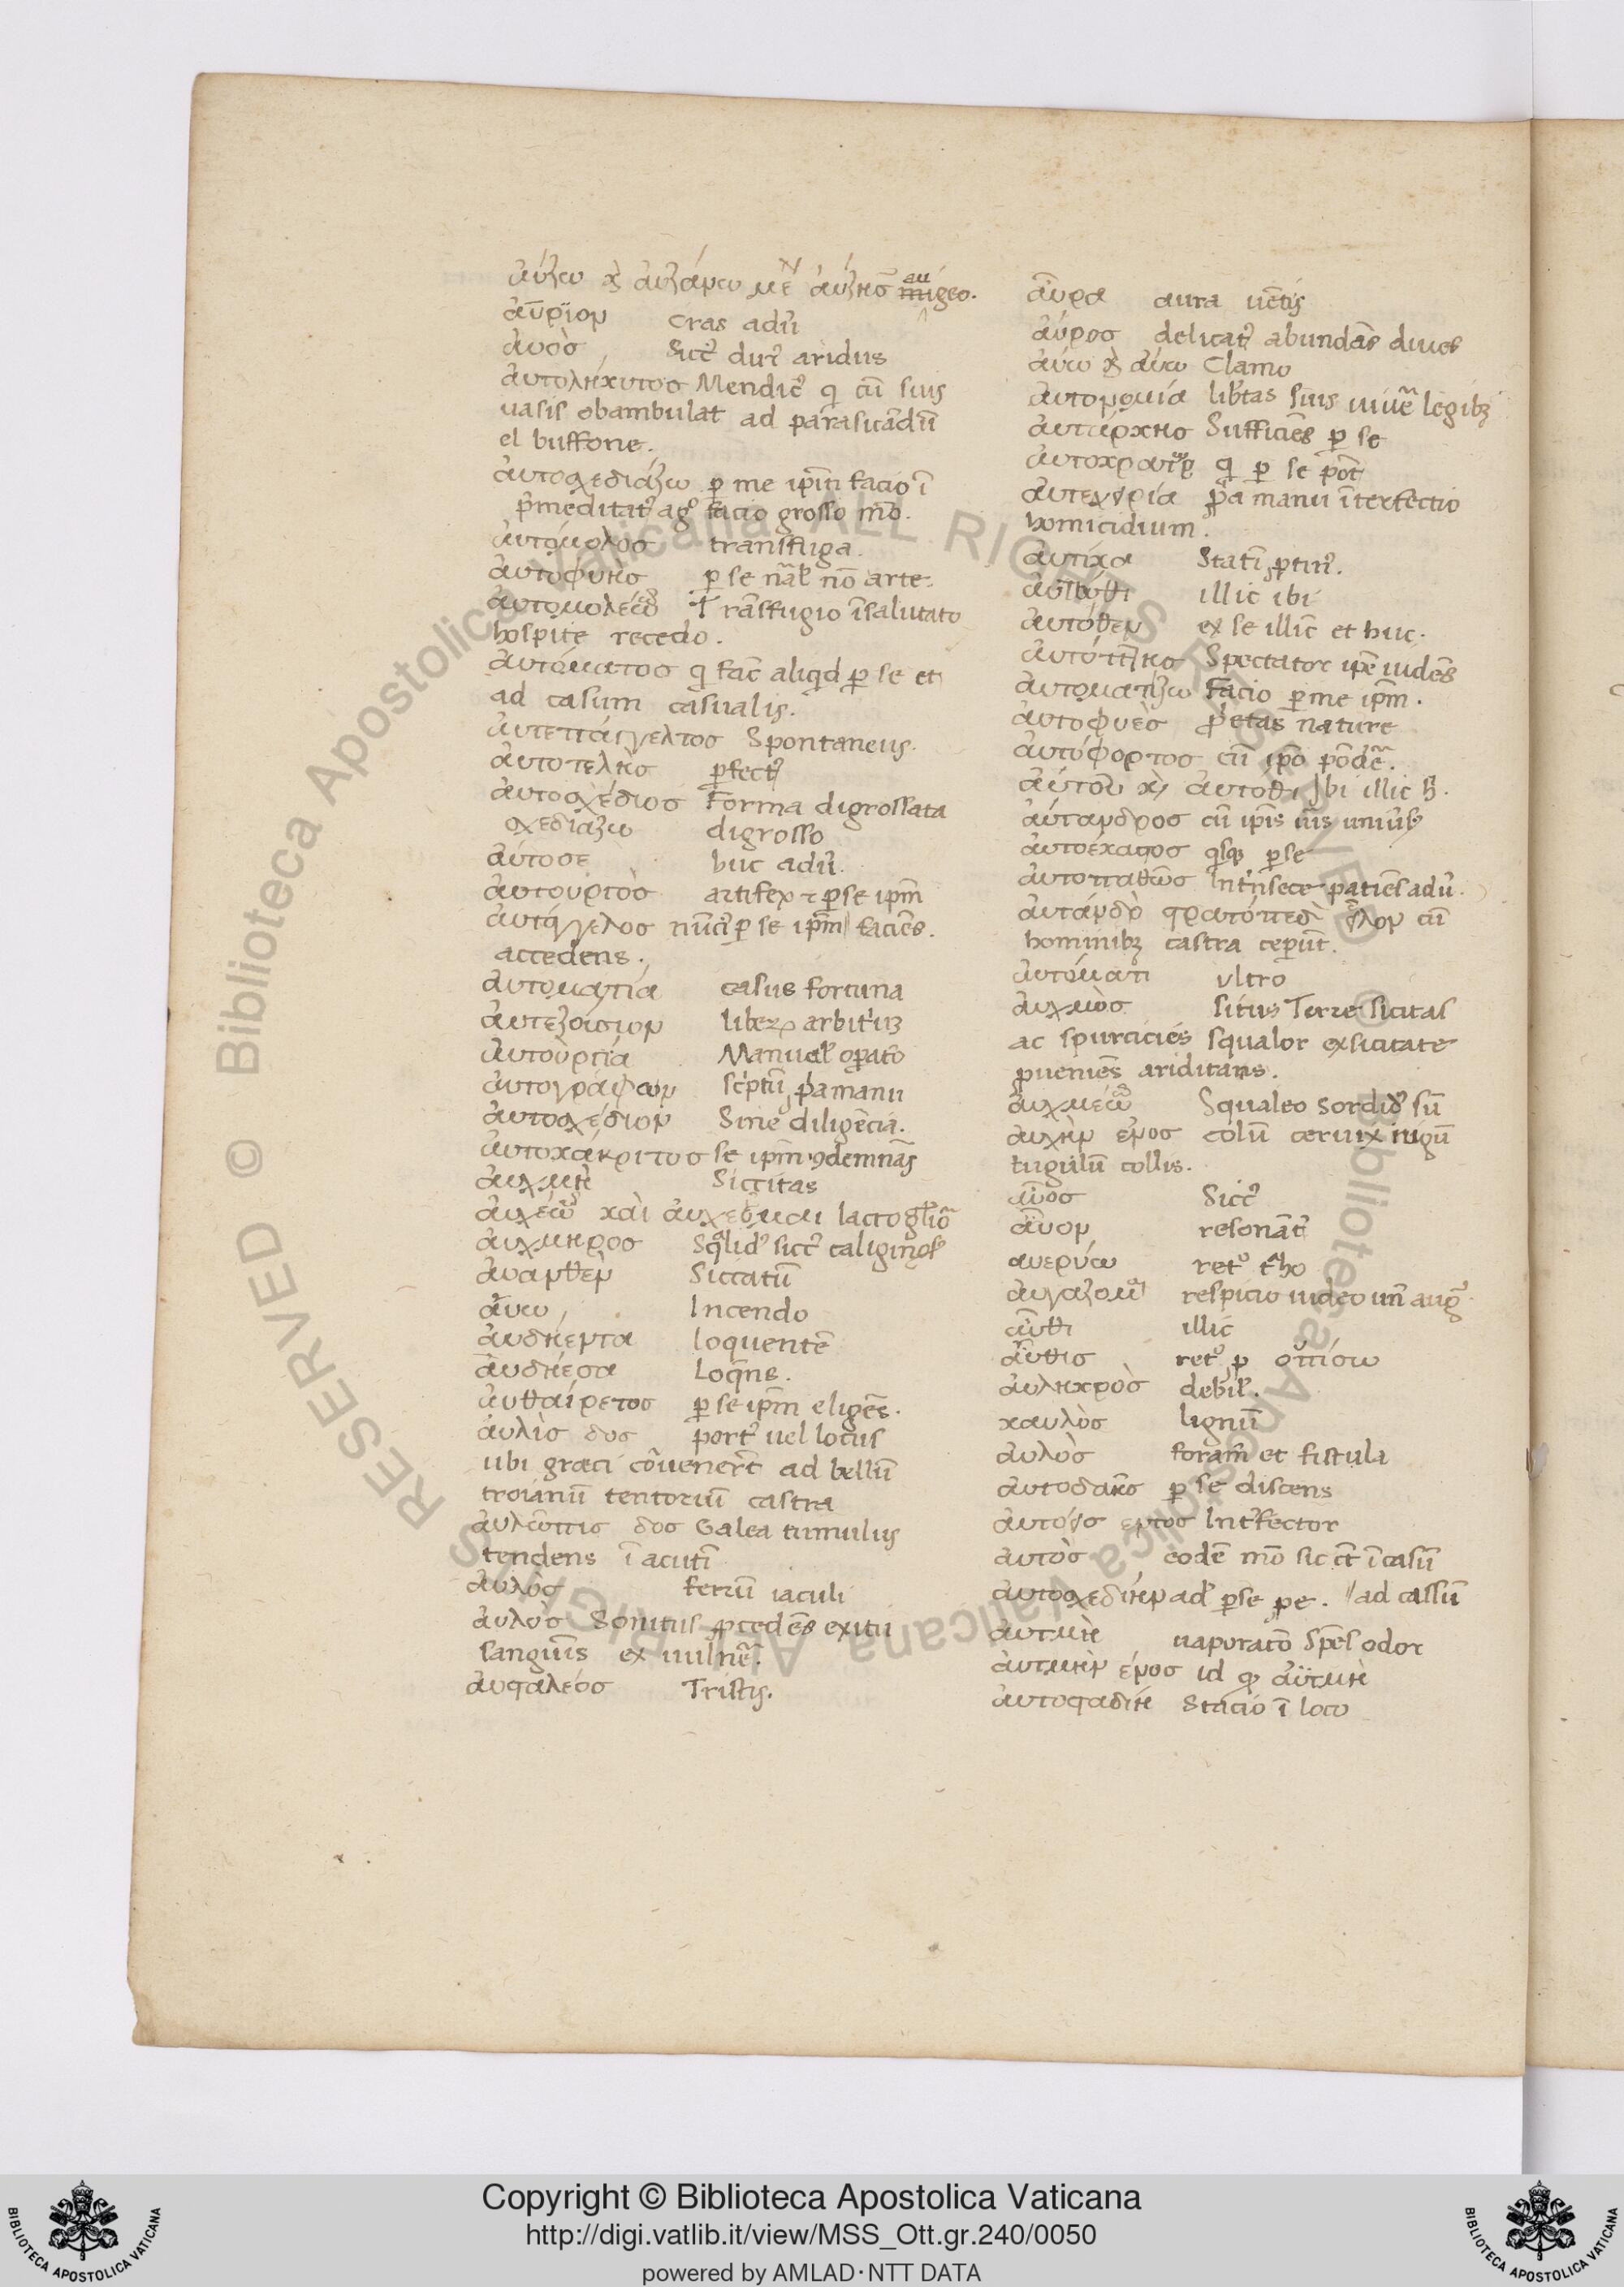 αὔξω καὶ αὐξάνω με αὔξησ augeo.
αὔριον cras adū
αυὸσ Sicc' dur' aridus
αυτολήκυτοσ Mendic' q cū suis
uasis obambulat ad parasitādū
el buffone.
αυτοσχεδιάζω p me ipm facio ī
pmeditat' ago facio grosso mō.
αυτόμολοσ transfuga.
αυτοφυησ p se nāl nō arte.
αυτομολέω Trāsfugio īsalutato
hospite recedo.
αυτόματοσ q fac aliqd p se et
ad casum casualis.
αυτεπάγγελτοσ Spontaneus.
αυτοτελὴσ pfect'
αυτοσχέδιοσ Forma digrossata
σχεδιάζω digrosso
αὐτοσε huc adū.
αυτουργὸσ artifex p se ipm
αυτάγγελοσ nūci' p se ipm faciēs.
accedens.
αυτοματία casus fortuna
αυτεξοίσιον liberū arbitriū
αυτουργία Manual opatō
αυτογράφων scptū ppa manu
αυτοσχέδιον Sine diligētia.
αυτοκάκριτοσ se ipm 9demnās
αυχμὴ Siccitas
αυχέω καὶ αυχέομαι Iacto glior
αυχμηροσ Sqalid' sicc' caliginos'
αυανθεν Siccatū
αὔω Incendo
αυδήεντα loquentē
αυδήεσα Loqns.
αυθαίρετοσ p se ipm eligēs.
αυλὶσ δοσ port' uel locus
ubi greci cōuenerūt ad bellū
troianū tentoriū castra
αυλεῶπισ δοσ Galea tumulus
tendens ī acutū
αυλὸσ ferrū iaculi
αυλὸσ Sonitus pcedēs exitu
sanguīs ex uulnē.
αυσταλέοσ Tristis.
αὔρα aura uētis
αὖροσ delicat' abundās diues
αὐω καὶ αύω Clamo
αυτονομία libtas suis uiuē legib;
αυτάρκησ Sufficiēs p se
αυτοκρατωρ q p se pōt
αυτεχειρία ppa manu īterfectio
homicidium.
αυτίκα Statī ptin'.
αυτόθι illic ibi
αυτόθεν ex se illīc et huc.
αυτόπτησ Spectator ipe uidēs
αυτοματίζω Facio p me ipm.
αυτοφυὲσ ppetas nature
αυτόφορτοσ cū ipo pōdē.
αύτου καὶ αυτόθι Ibi illic h.
αύτανδροσ cū ipis uis uniūs
αυτοέκαστοσ qsq p se
αυτοπαθῶσ Intrīsece patiēs adū.
αυτάνδρ στρατόπεδ ἕλον cū
hominib; castra cepūt.
αυτόματι ultro
αυχμὸσ situs Terre sicitas
ac spurcicies squalor ex sicitate
pueniēs ariditans.
αυχμέω Squaleo sordid' sū
αυχὴν ένοσ colū ceruix iugū
iugulū collis.
αῦοσ Sicc'
αῦον resonāt
αυερύω ret° tho
αυγάζομαι respicio uideo
αὖθι illic
αὖθισ ret° p οπίσω
αυληχρὸσ debil.
καυλὸσ lignū
αυλὸσ foram et fistula
αυτοδαὴσ p se discens
αυτο εντοσ Intfector
αυτὸσ eodē mō sic ī casū
αυτοσχεδίην ad p se pe. ad cassū
αυτμὴ uaporatō Spēs odor
αυτμὴν ένοσ id q αϋτμὴ
αυτοσταδίη Statio ī loco
Copyright © Biblioteca Apostolica Vaticana
http://digi.vatlib.it/view/MSS_Ott.gr.240/0050
powered by AMLAD·NTT DATA